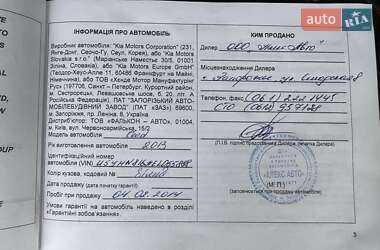 RIA.com
ІНФОРМАЦІЯ ПРО АВТОМОБІЛЬ
Виробник автомобіля: "Kia Motors Corporation" (231,
Янге-Донг, Сеочо-Гу, Сеул, Корея), або "Kia Motors
Slovakia s.r.o." (Маріанське Наместью 30/5, 01001
Зіліна, Словакія), або "Kia Motors Europe GmbH"
(Теодор-Хеус-Алле 11, 60486 Франкфурт на Майні,
Німеччина), або ТОВ "Хенде Мотор Мануфактурінг
Рус" (197706, Санкт-Петербург, Курортний район,
м. Сестрорецьк, Левашовське шосе, 20, літер. А
Російська Федерація), ПАТ "ЗАПОРІЗЬКИЙ АВТО-
МОБІЛЕБУДІВНИЙ ЗАВОД" (ПАТ «ЗАЗ»), 69600,
м. Запоріжжя, пр. Леніна, 8, Україна
Дистриб'ютор: ТОВ «ФАЛЬКОН - АВТО», 01004,
м. Київ, вул. Червоноармійська, 15/2
Модель автомобіля
Рік виготовлення автомобіля 2013
Ідентифікаційний номер
автомобіля (VIN)
Колір кузова, кодовий №
Дата продажу
(дата початку гарантії) 04.02.2014
Умови гарантії на автомобіль наведено в розділі
«Гарантійні зобов'язання».
КИМ ПРОДАНО
Дилер ООО "Алекс Авто"
Місцезнаходження Дилера
г. Запорожье, ул.
Телефон, факс (061) 222 1445
СТО
(П.І.Б. продавця Дилера, печатка Дилера)
«АЛЕКС АВТО»
(М.П.)
(заповнюється при продажу автомобіля)
3